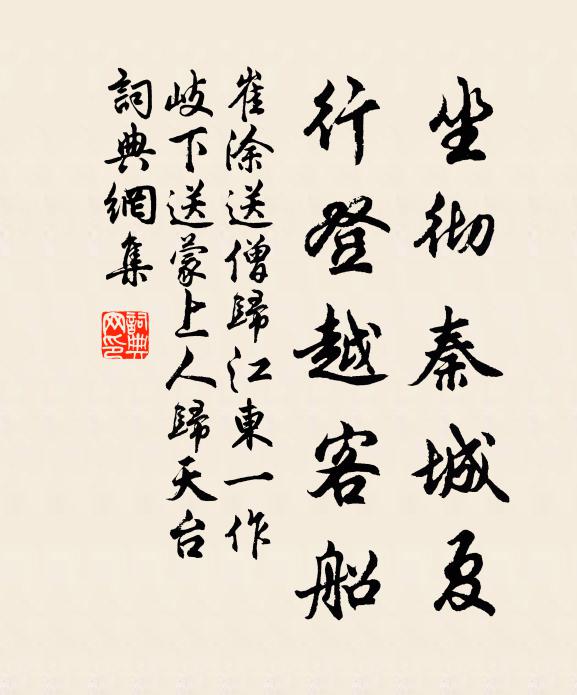 坐彻秦城夏
行登越客船
崔涂送僧歸江東一作
岐下送蒙上人歸天台
詞典網集
詞典網印